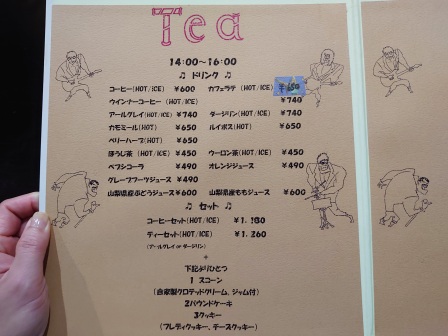 Tea
14:00~16:00
♫ ドリンク ♫
コーヒー(HOT/ICE) ¥600 カフェラテ (HOT/ICE) ¥650
ウインナーコーヒー (HOT/ICE) ¥740
アールグレイ(HOT/ICE) ¥740 ダージリン(HOT/ICE) ¥740
カモミール(HOT) ¥650 ルイボス(HOT) ¥650
ベリーハーブ(HOT) ¥650
ほうじ茶 (HOT/ICE) ¥450 ウーロン茶(HOT/ICE) ¥450
ペプシコーラ ¥490 オレンジジュース ¥490
グレープフーツジュース ¥490
山梨県産ぶどうジュース ¥600 山梨県産ももジュース ¥600
♫ セット ♫
コーヒーセット(HOT/ICE) ¥1.180
ティーセット(HOT/ICE) ¥1.260
(アールグレイ or ダージリン)
+
下記よりひとつ
1 スコーン
(自家製クロテッドクリーム、ジャム付)
2パウンドケーキ
3クッキー
(フレディクッキー、デースクッキー)